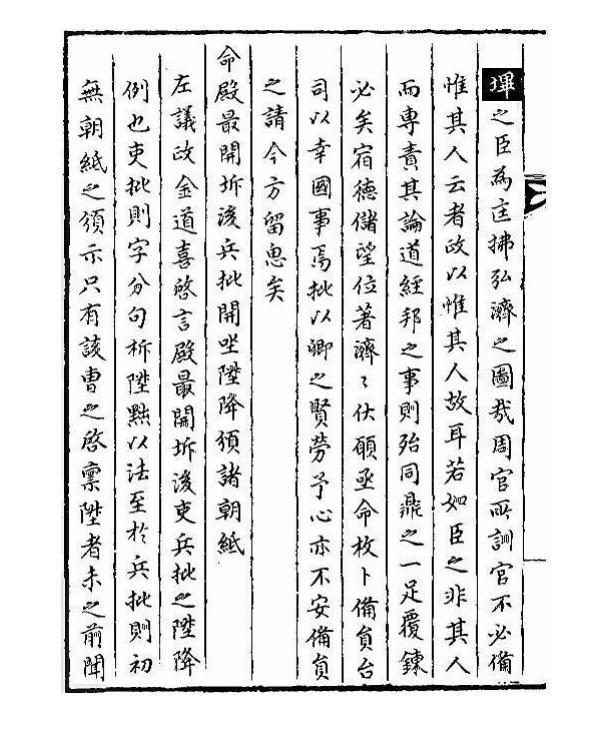 㙙之臣為匡拂弘濟之圖哉周官所訓官不必備
惟其人云者政以惟其人故耳若如臣之非其人
而專責其論道經邦之事則殆同鼎之一足覆餗
必矣宿德儲望位著濟〻伏願亟命枚卜備員台
司以幸國事焉批以卿之賢勞予心亦不安備員
之請今方留思矣
命殿最開坼後兵批開坐陞降須諸朝紙
左議政金道喜啓言殿最開坼後吏兵批之陞降
例也吏批則字分句析陞黜以法至於兵批則初
無朝紙之須示只有該曹之啓稟陞者未之前聞